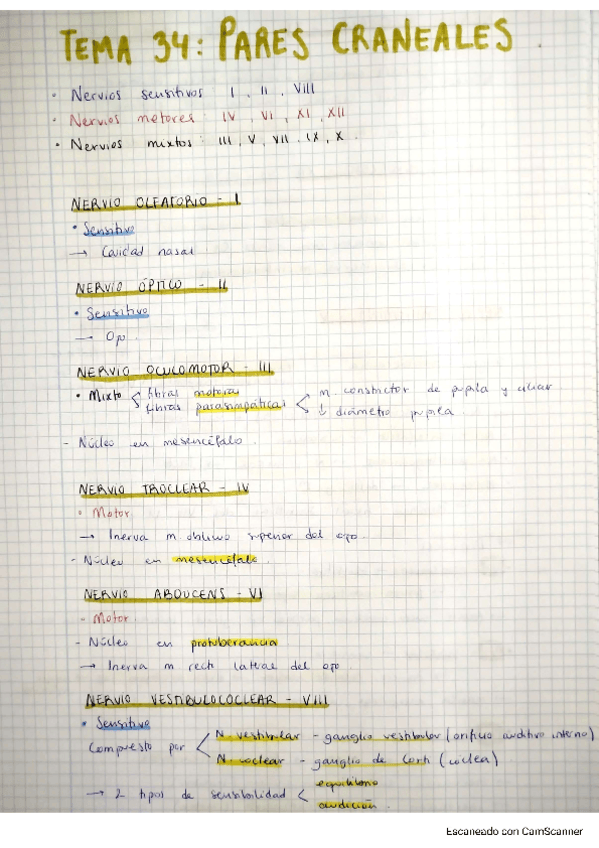 TEMA 34: PARES CRANEALES.
• Nervios sensitivos I, II, VIII
• Nervios motores: IV, VI, XI, XII
• Nervios mixtos: III, V, VII, IX, X.
NERVIO OLFATORIO - I
• Sensitivo
→ Cavidad nasal
NERVIO ÓPTICO - II
• Sensitivo
→ Ojo.
NERVIO OCULOMOTOR - III
• Mixto < fibras motoras
fibras parasimpáticas < m. constrictor de pupila y ciliar
↓ diámetro pupila.
- Núcleo en mesencéfalo.
NERVIO TROCLEAR - IV
• Motor
→ Inerva m oblicuo superior del ojo.
- Núcleo en mesencéfalo.
NERVIO ABDUCENS - VI
- Motor.
- Núcleo en protuberancia
→ Inerva m recto lateral del ojo.
NERVIO VESTIBULOCOCLEAR - VIII
• Sensitivo
Compuesto por < N. vestibular - ganglio vestibular (orificio auditivo interno)
N. coclear - ganglio de Corti (cóclea)
→ 2 tipos de sensibilidad < equilibrio
audición.
Escaneado con CamScanner